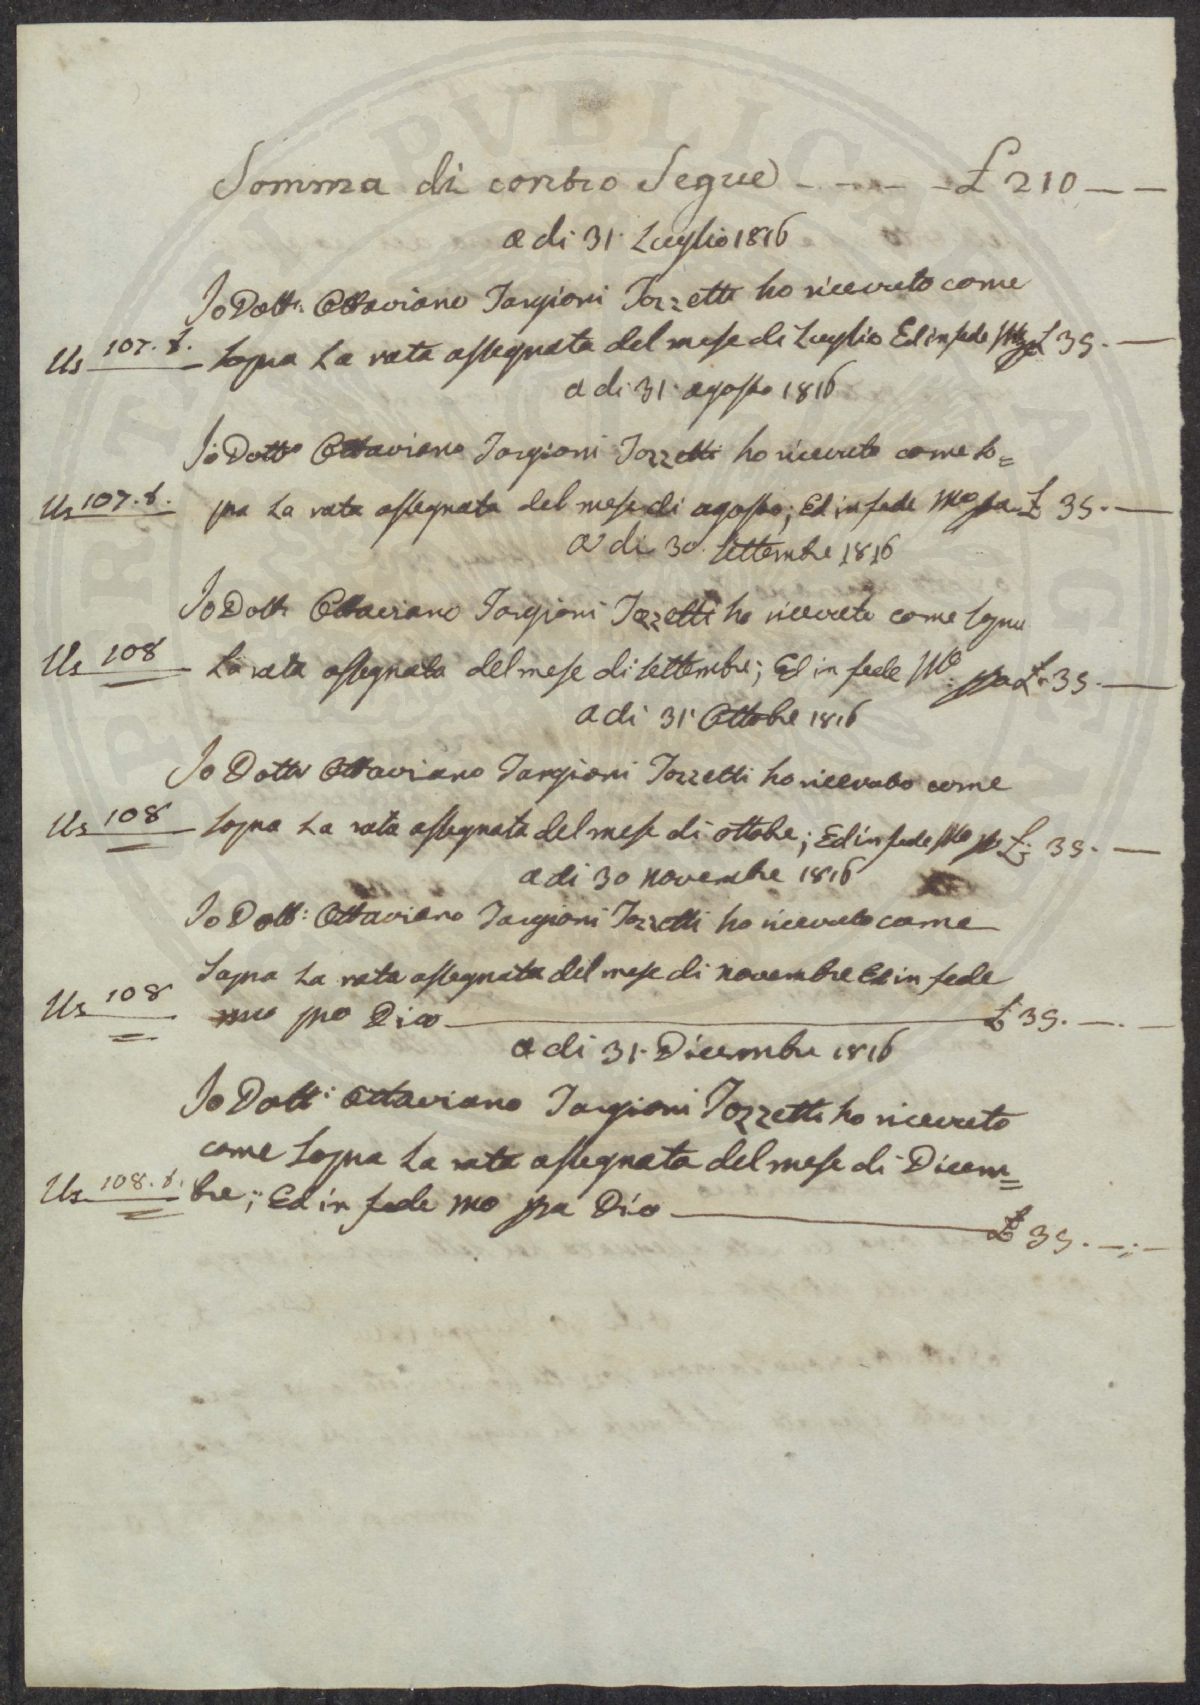 Somma di contro Segue - - - - £ 210 — —
a di 31. Luglio 1816
Io Dott: Ottaviano Targioni Tozzetti ho ricevuto come
Us 107. t. Sopra La rata assegnata del mese di Luglio Ed in fede £ 35. —
a di 31. agosto 1816
Io Dott Ottaviano Targioni Tozzetti ho ricevuto come so=
Us 107. t. pra La rata assegnata del mese di agosto; Ed in fede mo pa £ 35. —
a di 30. Settembre 1816
Io Dott Ottaviano Targioni Tozzetti ho ricevuto come Sopra
Us 108 La rata assegnata del mese di Settembre; Ed in fede Mo pa £ 35. —
a di 31. Ottobre 1816
Io Dott Ottaviano Targioni Tozzetti ho ricevuto come
Us 108 Sopra La rata assegnata del mese di ottobe; Ed in fede Mo po £ 35. —
a di 30 Novembre 1816
Io Dott: Ottaviano Targioni Tozzetti ho ricevuto come
Sopra La rata assegnata del mese di Novembre Ed in fede
Us 108 mo po Dico — £ 35. — . —
a di 31. Dicembre 1816
Io Dott: Ottaviano Targioni Tozzetti ho ricevuto
come Sopra La rata assegnata del mese di Dicem=
Us 108. t. bre; Ed in fede mo pa Dico — £ 35. — . —